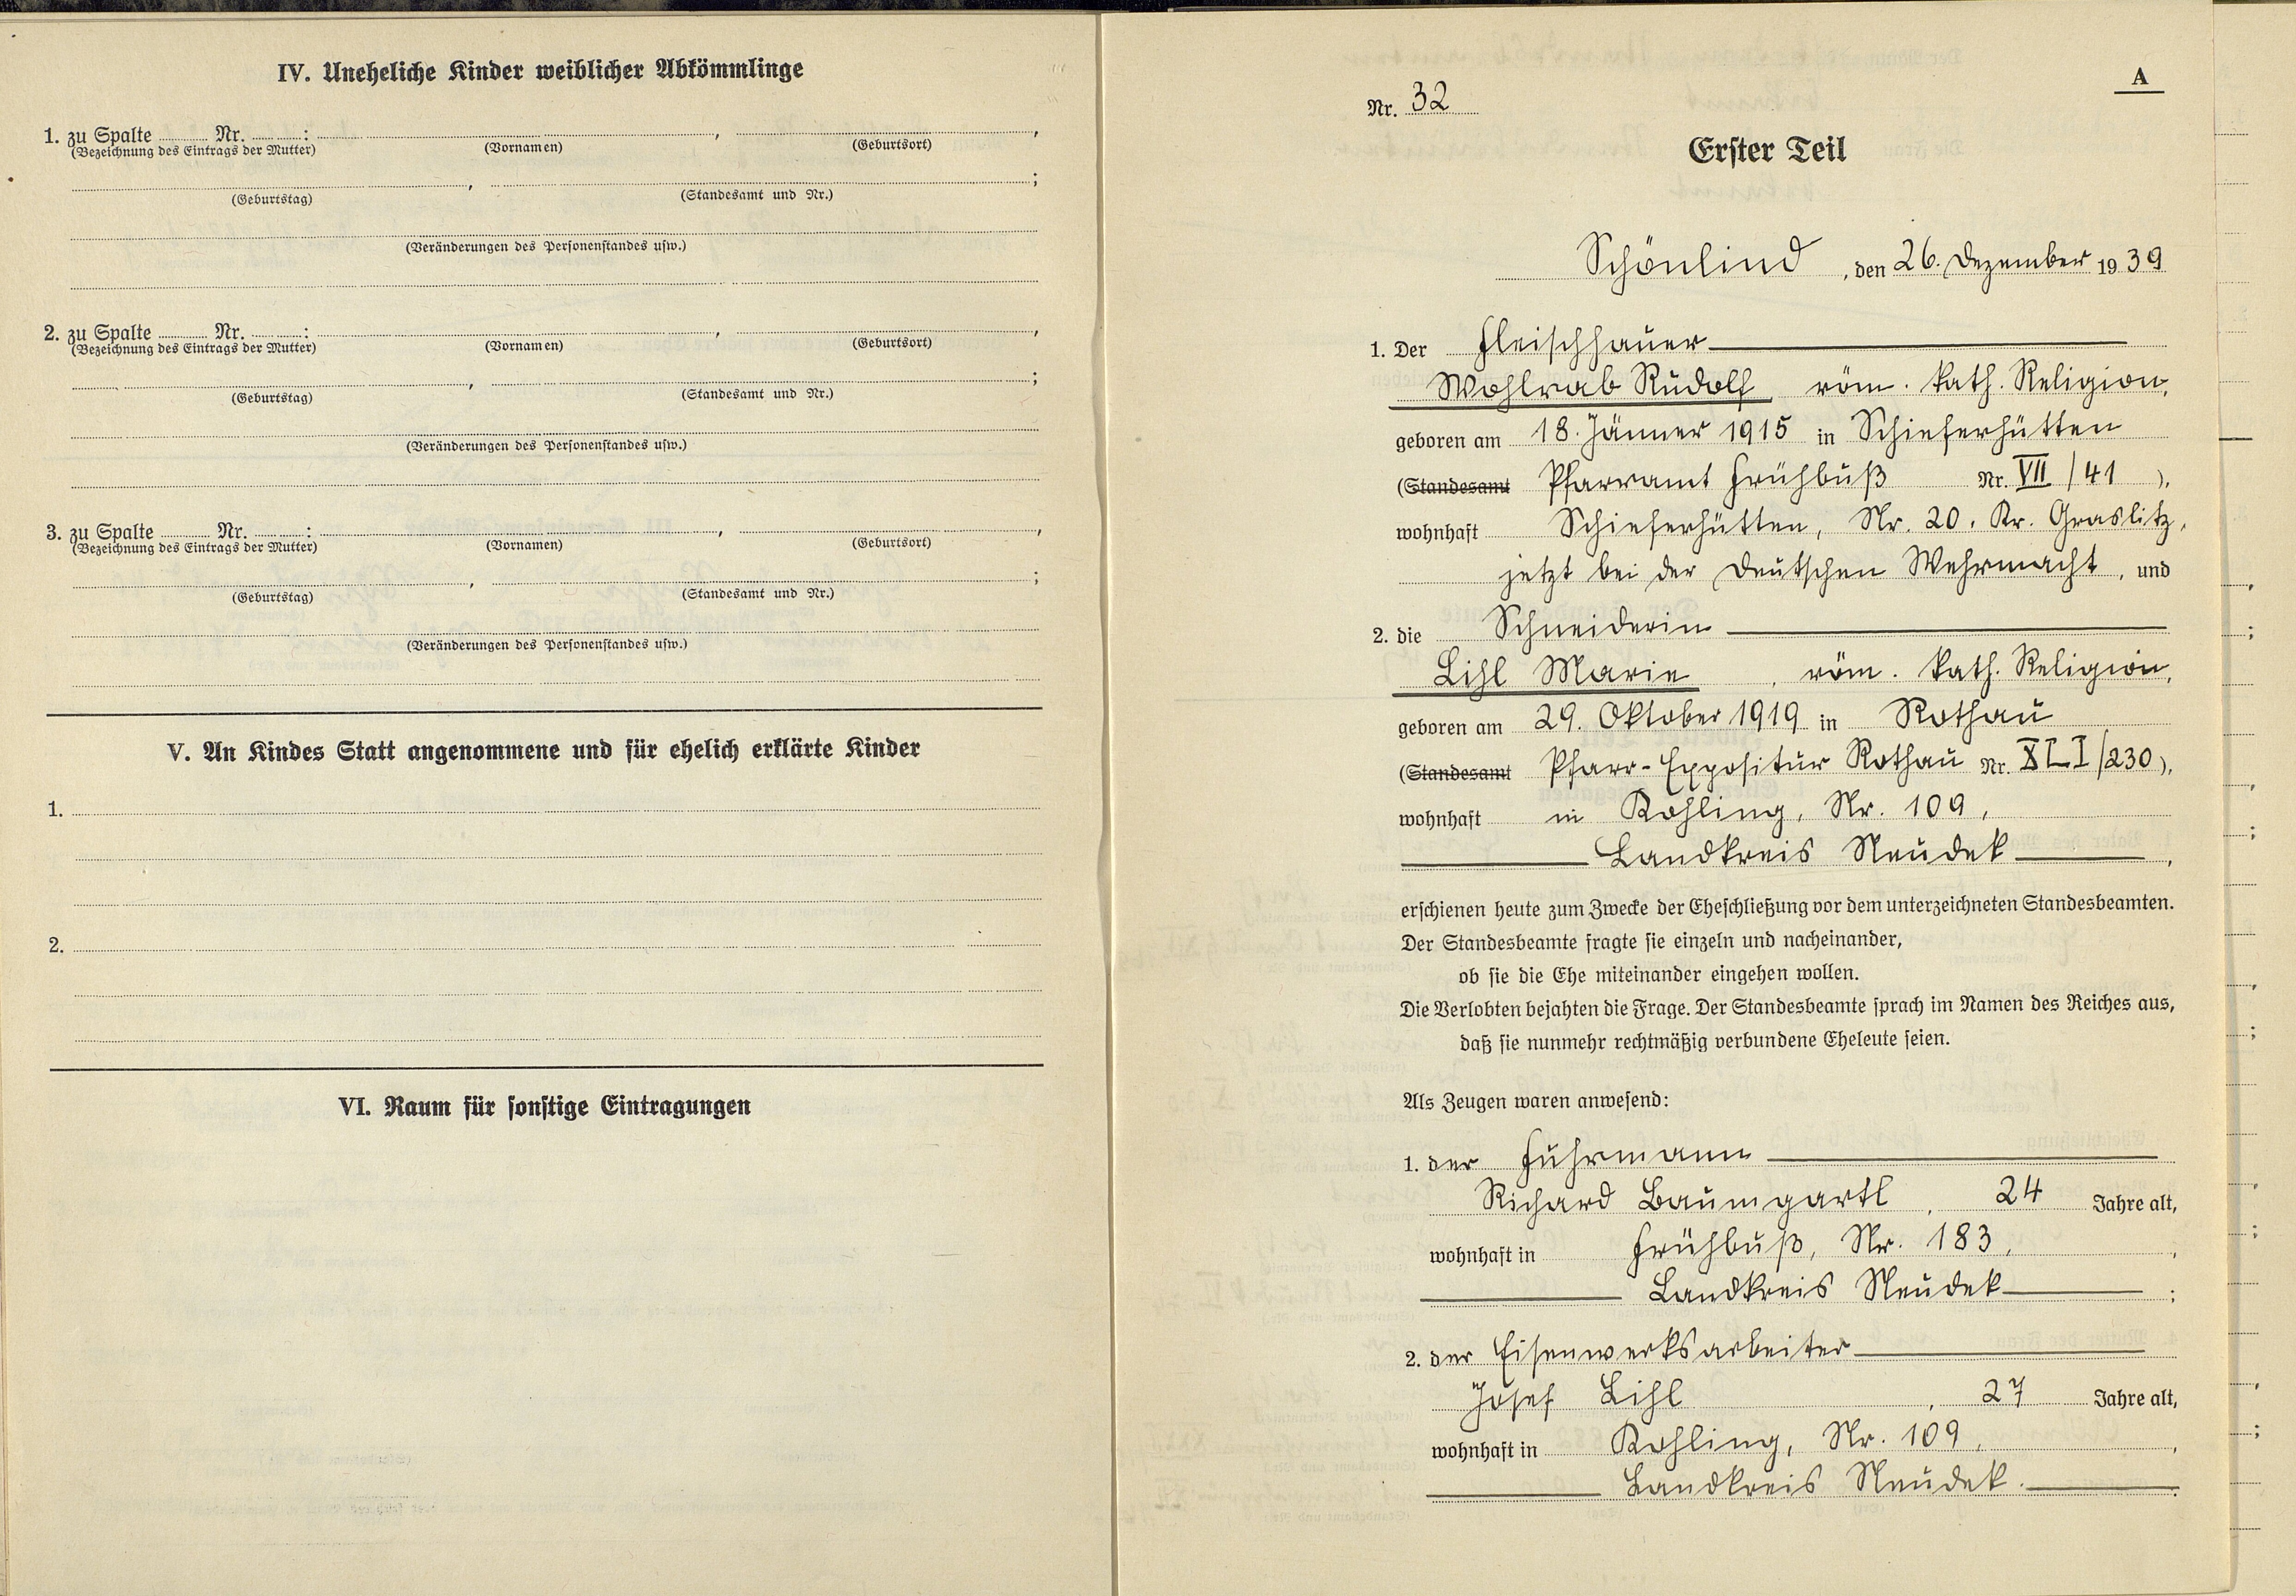 IV. Uneheliche Kinder weiblicher Abkömmlinge
1. zu Spalte ........ Nr. ........: ........, ........,
(Bezeichnung des Eintrags der Mutter) (Vornamen) (Geburtsort)
........, ........;
(Geburtstag) (Standesamt und Nr.)
(Veränderungen des Personenstandes usw.)
2. zu Spalte ........ Nr. ........: ........, ........,
(Bezeichnung des Eintrags der Mutter) (Vornamen) (Geburtsort)
........, ........;
(Geburtstag) (Standesamt und Nr.)
(Veränderungen des Personenstandes usw.)
3. zu Spalte ........ Nr. ........: ........, ........,
(Bezeichnung des Eintrags der Mutter) (Vornamen) (Geburtsort)
........, ........;
(Geburtstag) (Standesamt und Nr.)
(Veränderungen des Personenstandes usw.)
V. An Kindes Statt angenommene und für ehelich erklärte Kinder
1.
2.
VI. Raum für sonstige Eintragungen
A
Nr. 32
Erster Teil
Schönlind, den 26. Dezember 1939
1. Der Fleischhauer
Wohlrab Rudolf röm. kath. Religion,
geboren am 18. Jänner 1915 in Schieferhütten
(Standesamt Pfarramt Frühbuß Nr. VII/41),
wohnhaft Schieferhütten, Nr. 20, Kr. Graslitz,
jetzt bei der Deutschen Wehrmacht, und
2. die Schneiderin
Lihl Marie, röm. kath. Religion,
geboren am 29. Oktober 1919 in Rothau
(Standesamt Pfarr-Expositur Rothau Nr. XLI/230),
wohnhaft in Kohling, Nr. 109,
Landkreis Neudek,
erschienen heute zum Zwecke der Eheschließung vor dem unterzeichneten Standesbeamten.
Der Standesbeamte fragte sie einzeln und nacheinander,
ob sie die Ehe miteinander eingehen wollen.
Die Verlobten bejahten die Frage. Der Standesbeamte sprach im Namen des Reiches aus,
daß sie nunmehr rechtmäßig verbundene Eheleute seien.
Als Zeugen waren anwesend:
1. der Fuhrmann
Richard Baumgartl, 24 Jahre alt,
wohnhaft in Frühbuß, Nr. 183,
Landkreis Neudek;
2. der Eisenwerksarbeiter
Josef Lihl, 27 Jahre alt,
wohnhaft in Kohling, Nr. 109,
Landkreis Neudek.